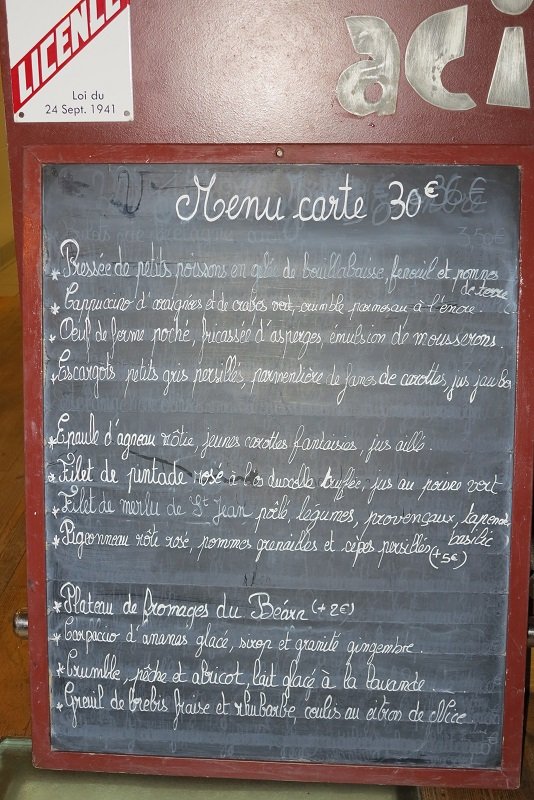 LICENCE
Loi du
24 Sept. 1941
aci
Menu carte 30€
* Pressée de petits poissons en gelée de bouillabaisse, fenouil et pommes
de terre
* Cappuccino d'araignées et de crabes vert, crumble parmesan à l'encre.
* Oeuf de ferme poché, fricassée d'asperges, émulsion de mousserons.
* Escargots petits gris persillés, parmentière de fanes de carottes, jus
* Epaule d'agneau rôtie, jeunes carottes fantaisies, jus aillé.
* Filet de pintade rosé à la duxelle truffée, jus au poivre vert
* Filet de merlu de St Jean poêlé, légumes, provençaux, tapenade
basilic
* Pigeonneau rôti rosé, pommes grenailles et cèpes persillés (+5€)
* Plateau de fromages du Béarn (+2€)
* Carpaccio d'ananas glacé, sirop et granité gingembre.
* Crumble, pêche et abricot, lait glacé à la lavande.
* Greuil de brebis fraise et rhubarbe, coulis au citron de Nice